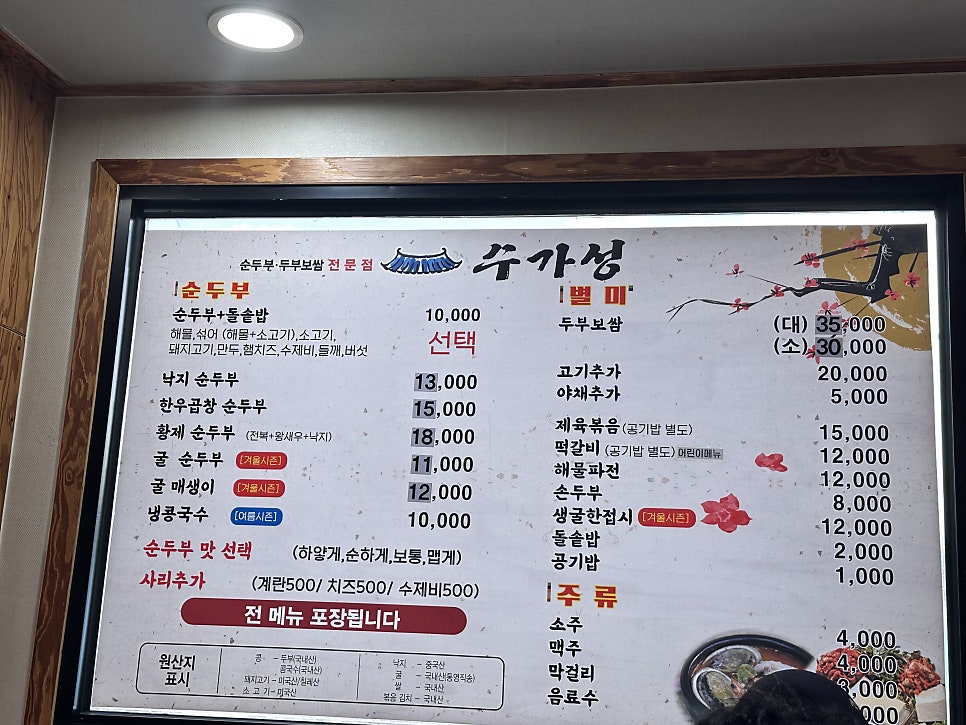 순두부·두부보쌈 전문점 수가성
순두부
순두부+돌솥밥 10,000
해물,섞어 (해물+소고기),소고기,
돼지고기,만두,햄치즈,수제비,들깨,버섯 선택
낙지 순두부 13,000
한우곱창 순두부 15,000
황제 순두부 (전복+왕새우+낙지) 18,000
굴 순두부 [겨울시즌] 11,000
굴 매생이 [겨울시즌] 12,000
냉콩국수 [여름시즌] 10,000
순두부 맛 선택 (하얗게,순하게,보통,맵게)
사리추가 (계란500/ 치즈500/ 수제비500)
전 메뉴 포장됩니다
원산지
표시
콩 - 두부(국내산)
콩국수(국내산)
돼지고기 - 미국산/칠레산
소고기 - 미국산
낙지 - 중국산
굴 - 국내산(통영직송)
쌀 - 국내산
볶음 김치 - 국내산
별미
두부보쌈 (대) 35,000
(소) 30,000
고기추가 20,000
야채추가 5,000
제육볶음 (공기밥 별도) 15,000
떡갈비 (공기밥 별도) 어린이메뉴 12,000
해물파전 12,000
순두부 8,000
생굴한접시 [겨울시즌] 12,000
돌솥밥 2,000
공기밥 1,000
주류
소주 4,000
맥주 4,000
막걸리 ,000
음료수 000